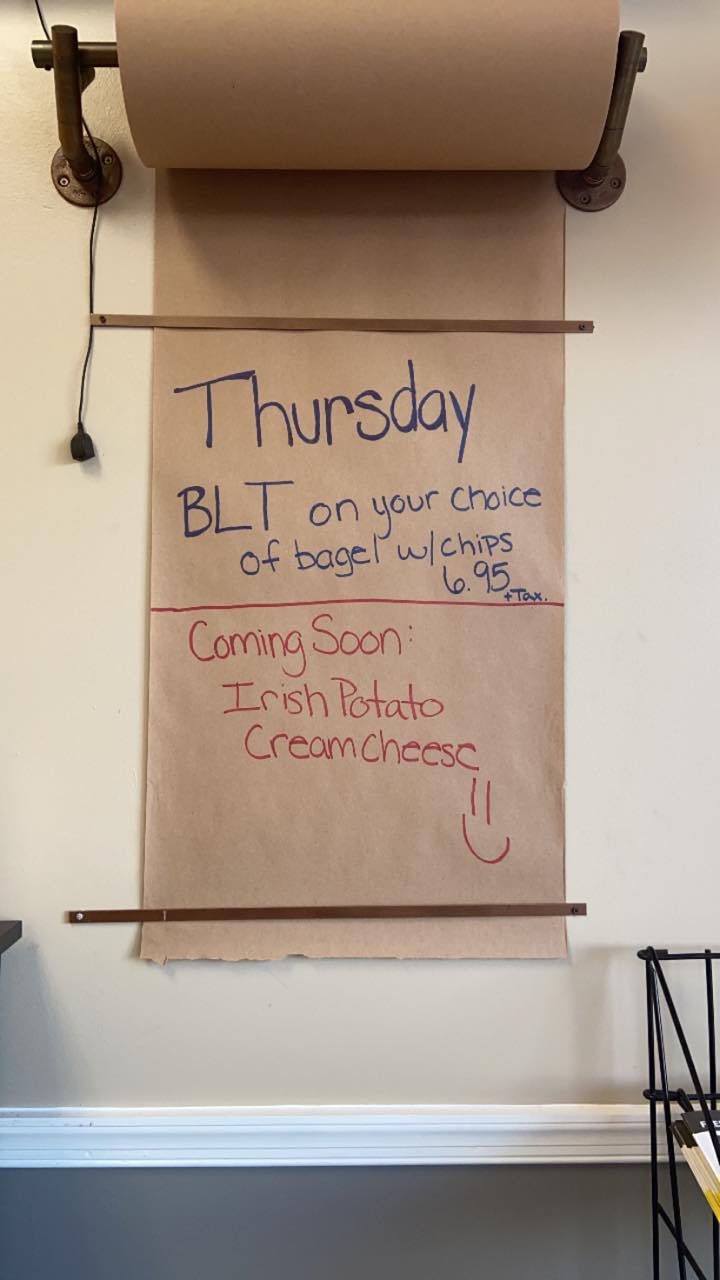 Thursday
BLT on your choice
of bagel w/chips
6.95
+Tax.
Coming Soon:
Irish Potato
Cream cheese